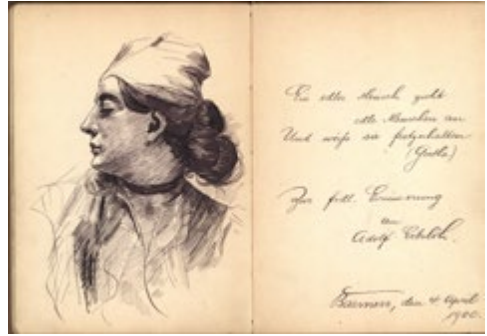 Ein edler Mensch zieht
edle Menschen an
Und weiß sie festzuhalten
(Goethe)
Zur frdl. Erinnerung
an
Adolf
Barmen, den 4. April
1900.